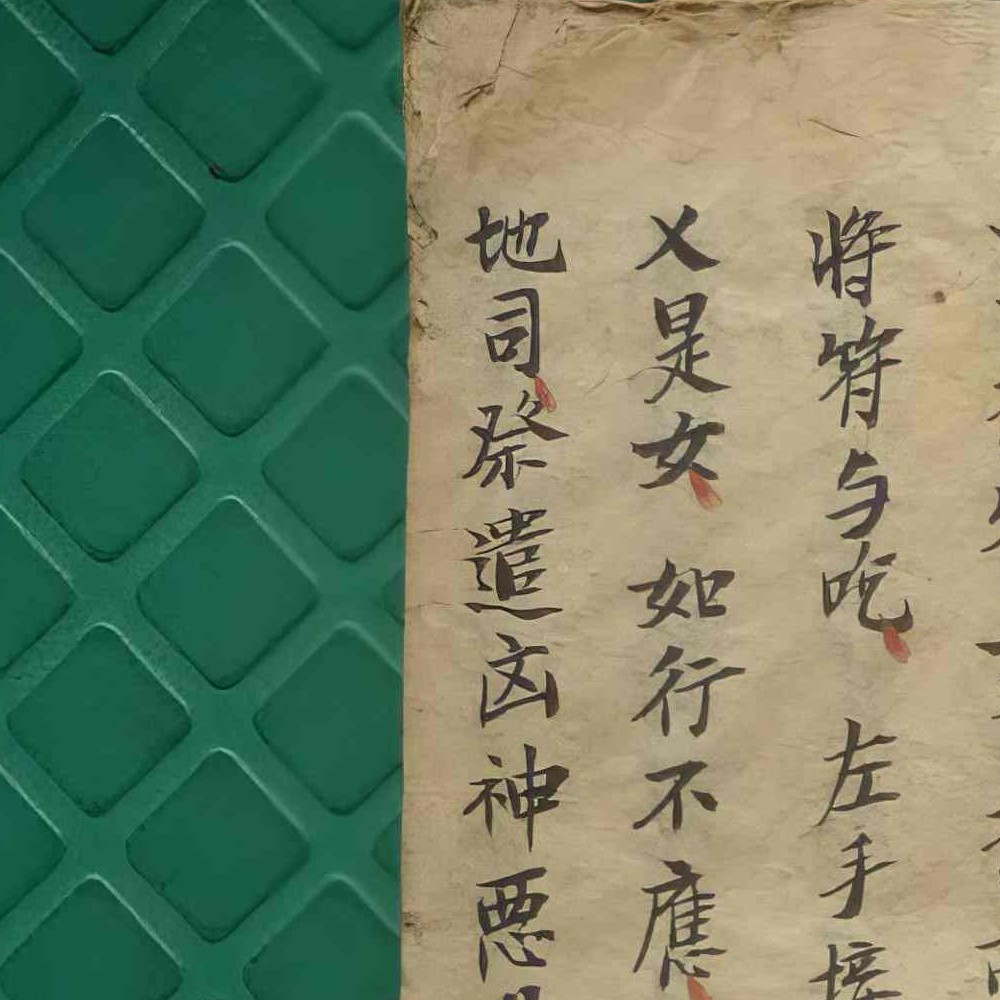 将符与吃 左手接
乂是女 如行不應
地司祭遣凶神悪